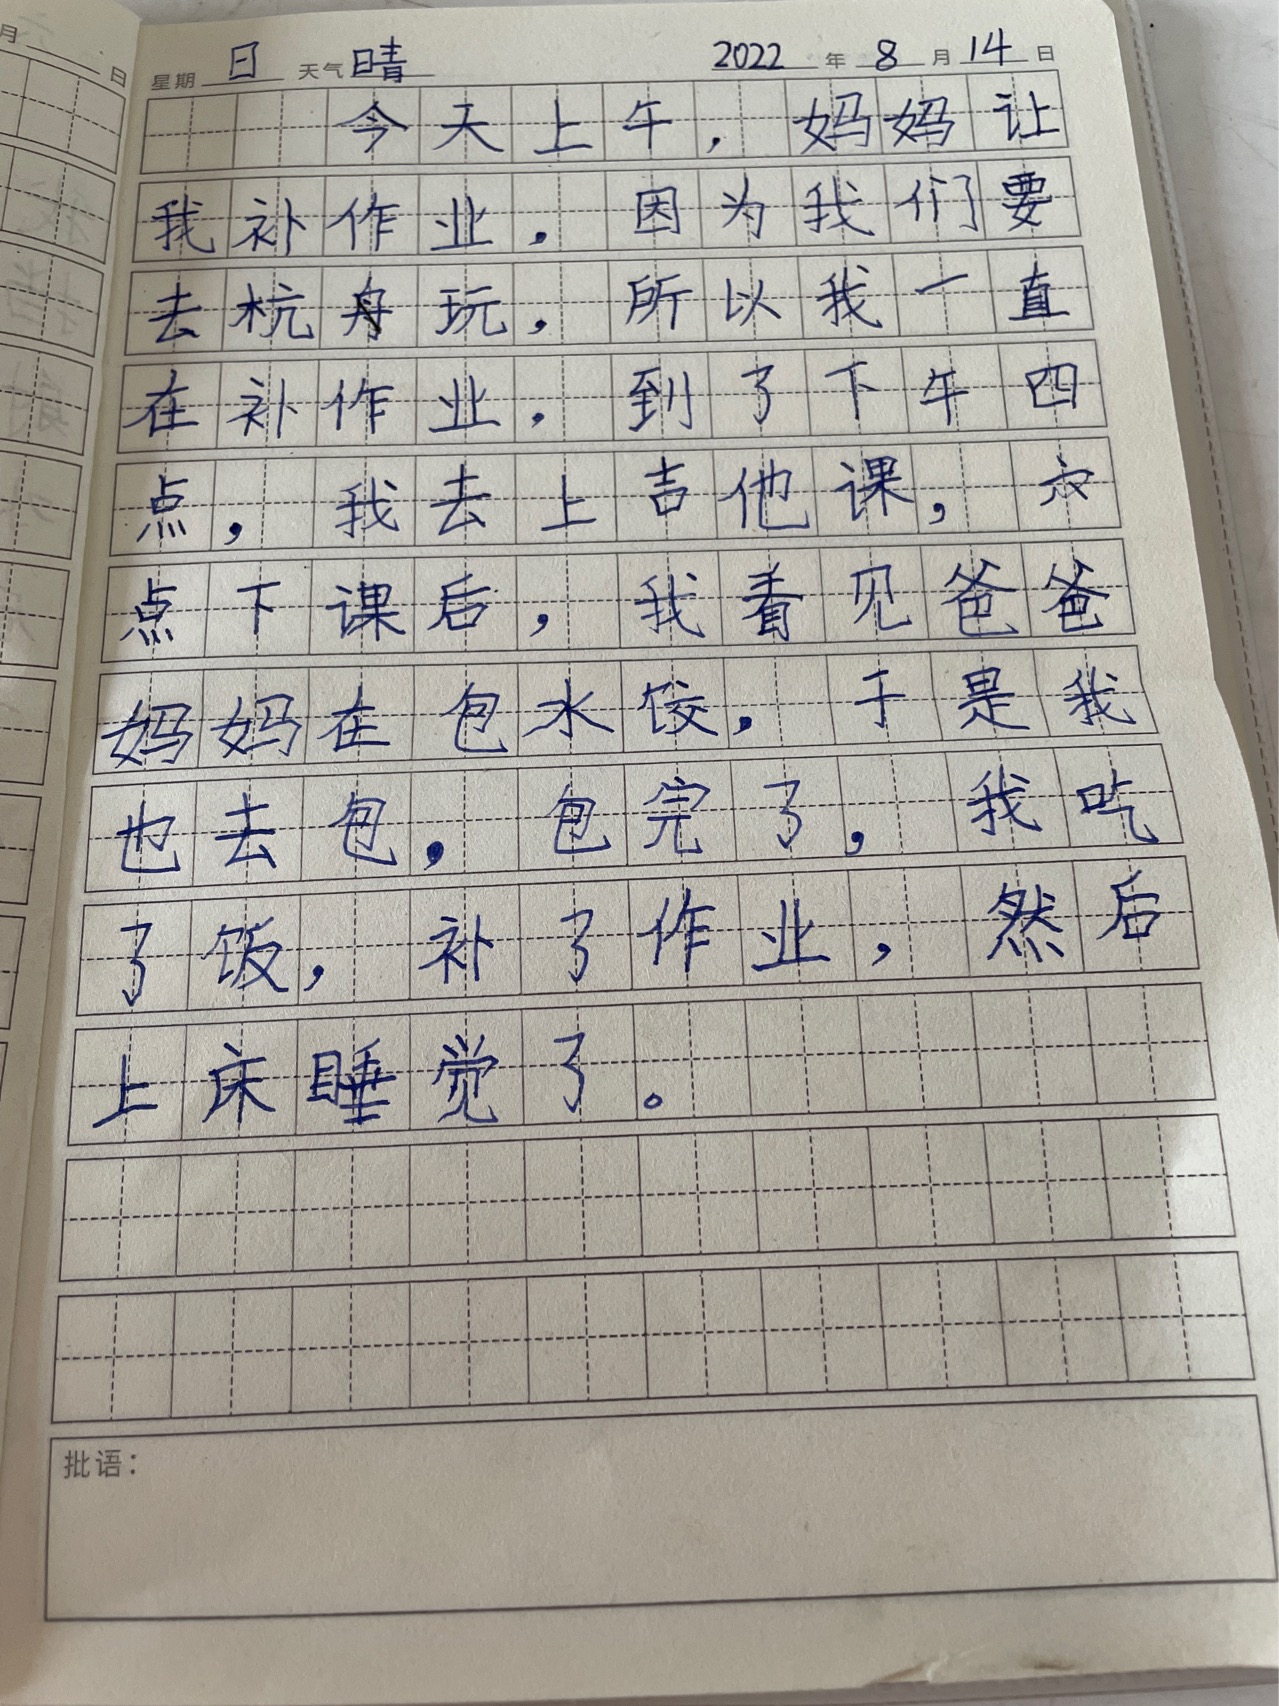 星期 日 天气 晴 2022 年 8 月 14 日
今天上午，妈妈让
我补作业，因为我们要
去杭舟玩，所以我一直
在补作业，到了下午四
点，我去上吉他课，六
点下课后，我看见爸爸
妈妈在包水饺，于是我
也去包，包完了，我吃
了饭，补了作业，然后
上床睡觉了。
批语：
月 日